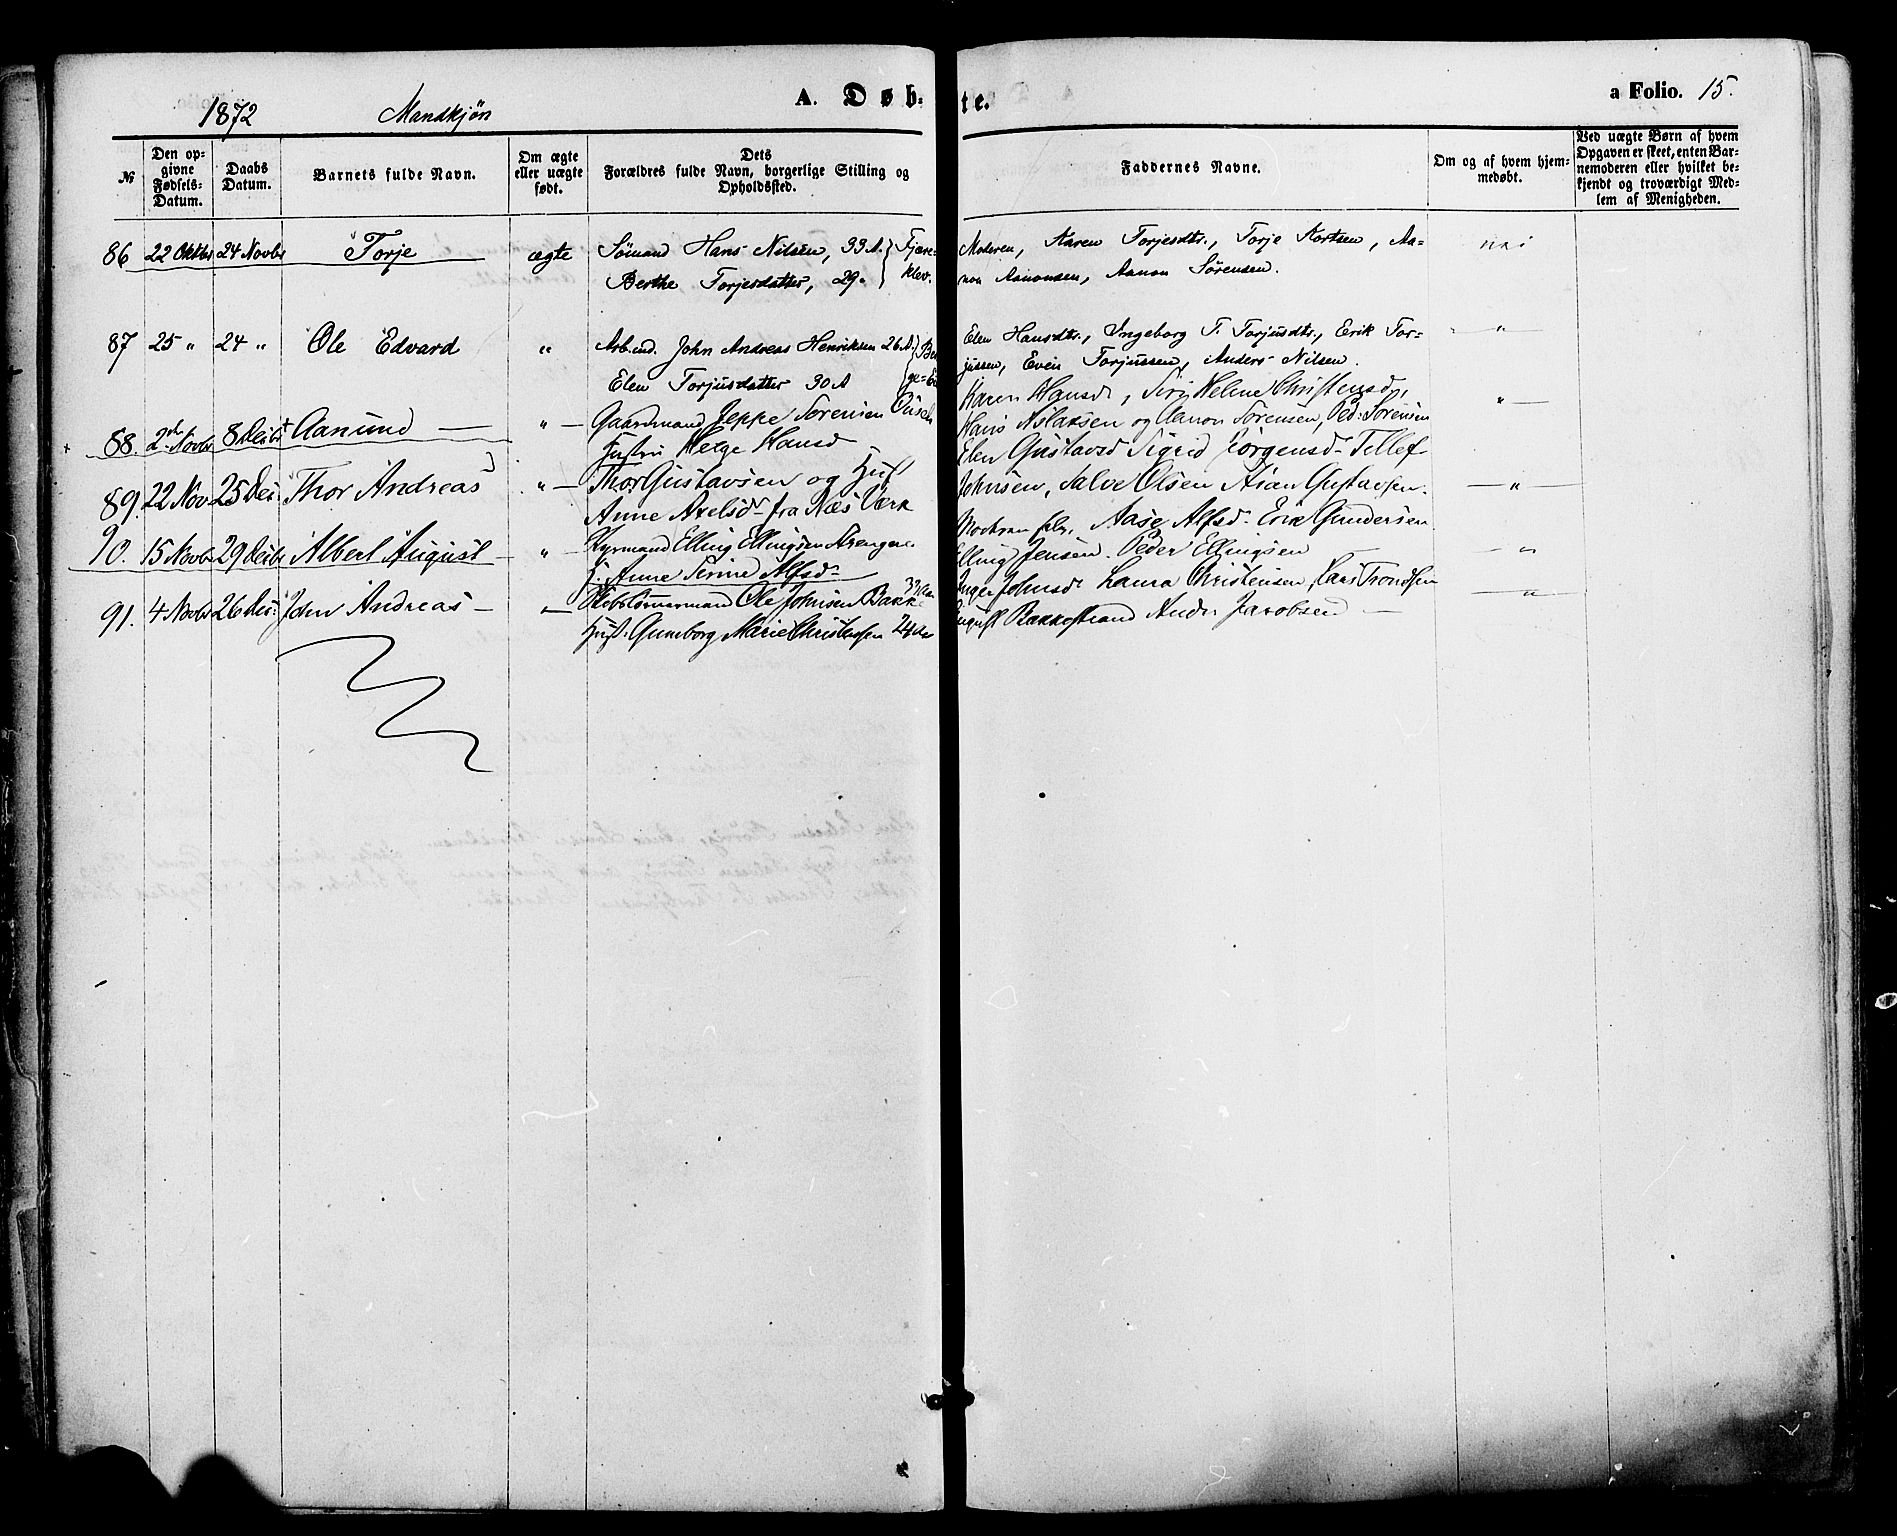 1872 Mandkjøn A. Døb-te. a Folio. 15.
№
Den op-
givne
Fødsels-
Datum.
Daabs
Datum.
Barnets fulde Navn.
Om ægte
eller uægte
født.
Dets
Forældres fulde Navn, borgerlige Stilling og
Opholdssted.
Faddernes Navne.
Om og af hvem hjem-
medøbt.
Ved uægte Børn af hvem
Opgaven er skeet, enten Bar-
nemoderen eller hvilket be-
kjendt og troværdigt Med-
lem af Menigheden.
86 22 Oktbr 24 Novbr Torje ægte Sømand Hans Nilsen, 33 A. Fjære- Moderen, Karen Torjesdtr., Torje Kortsen, Aa- nei
Berthe Torjesdatter, 29. klev. non Aanonsen, Aanon Sörensen.
87 25 " 24 " Ole Edvard " Arb.md. John Andreas Henriksen 26 A. Elen Hansdtr., Ingeborg T. Torjusdtr., Erik Tor- "
Elen Torjusdatter 30 A jussen, Even Torjussen, Anders Nilsen.
88. 2 Novbr 8 Decbr Aanund — " — Gaardmand Jeppe Sörensen Karen Hansd, Siri Helene Christensd, — " —
Hustru Helge Hansd Hans Aslaksen og Aanon Sörensen, Ped. Sörensen
89. 22 Nov 25 Dec. Thor Andreas " — Thor Gustavsen og Hust Elen Gustavsd Sigrid Jörgensd Tellef
Anne Axelsd fra Næs Værk Johnsen, Salve Olsen Gustavsen. — " —
90. 15 Novbr 29 Decbr Albert August — " — Styrmand Elling Ellingsen Strengere Aase Alfsd. Erik Gundersen
H. Anne Serine Alfsd Elling Jensen. Peder Ellingsen — — " —
91. 4 Novbr 26 Dec. John Andreas — " — Ole Johnsen Bakke Inger Johnsd Laura Christensen, Lars Trondsen — " —
Hust. Gunneborg Marie Christensen 24 Aar August Bakkestrand Andr. Jacobsen —